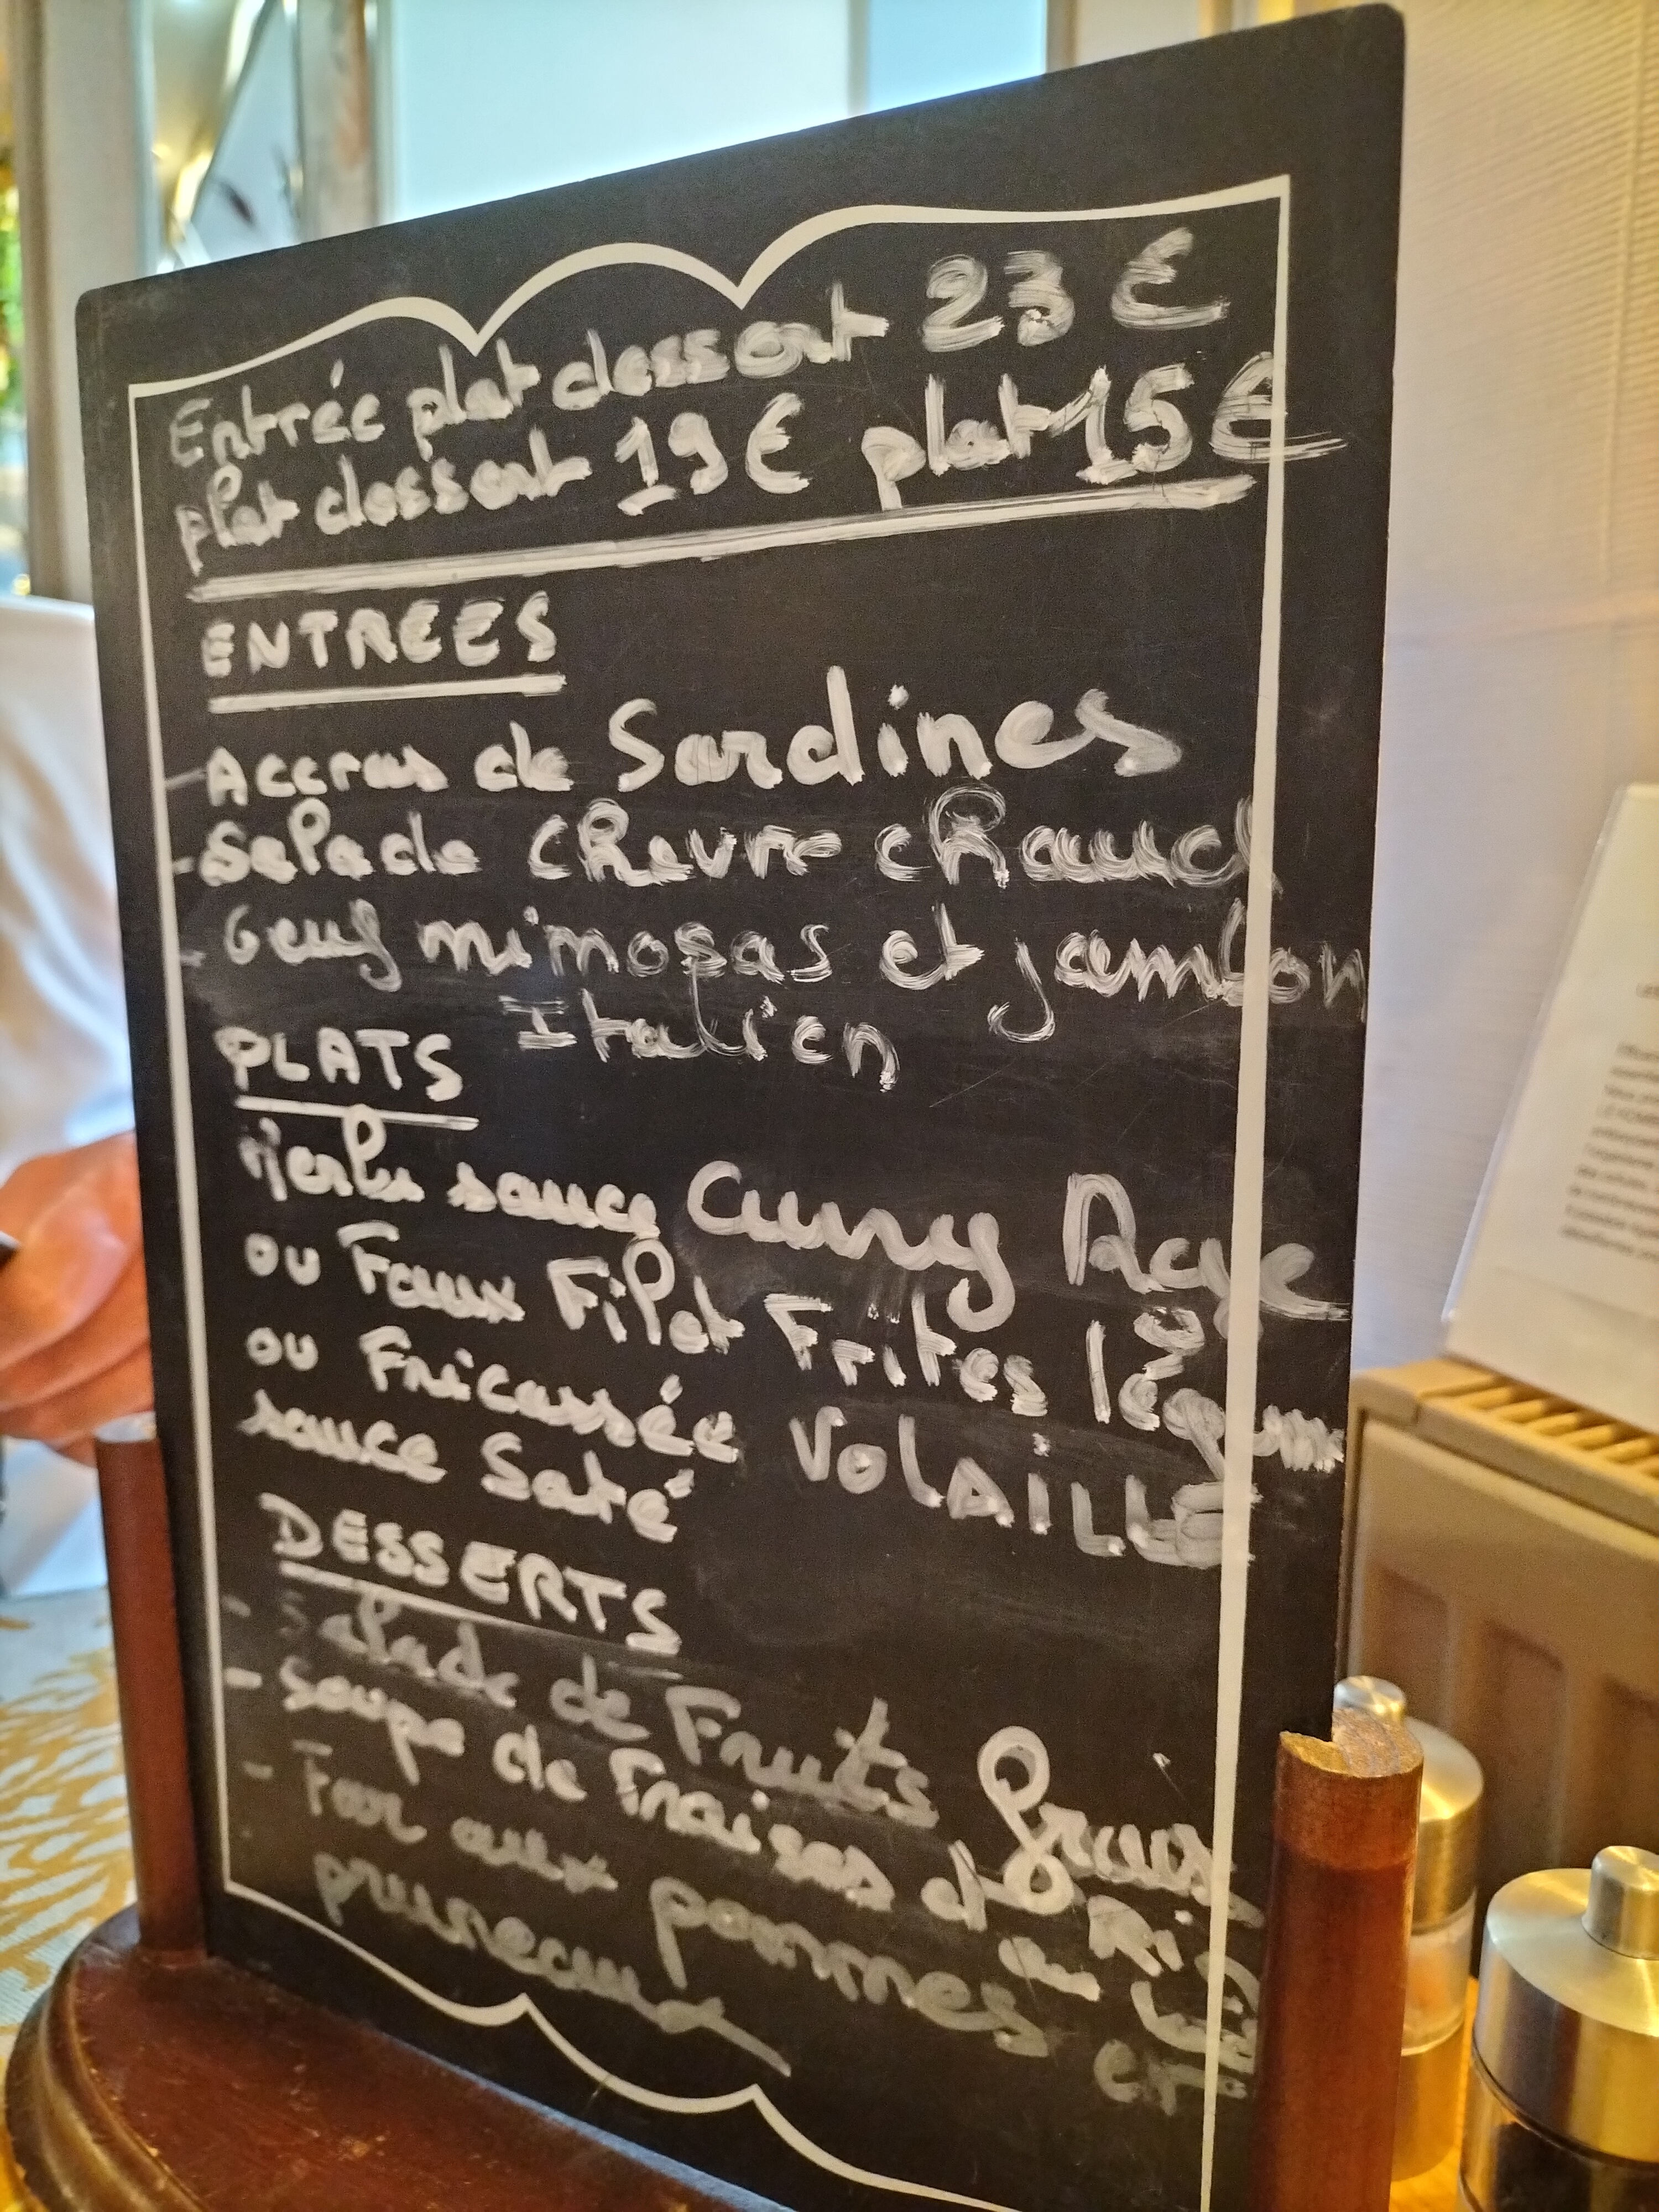 Entrée plat dessert 23 €
plat dessert 19 € plat 15 €
ENTREES
- Accras de Sardines
- Salade chevre chaud
- Oeuf mimosas et jambon
Italien
PLATS
Merlu sauce Curry
ou Faux Filet Frites légum
ou Fricassée VolAILLE
sauce Saté
DESSERTS
- Salade de Fruits frais
- Soupe de Fraises et
- Far aux pommes et
pruneaux